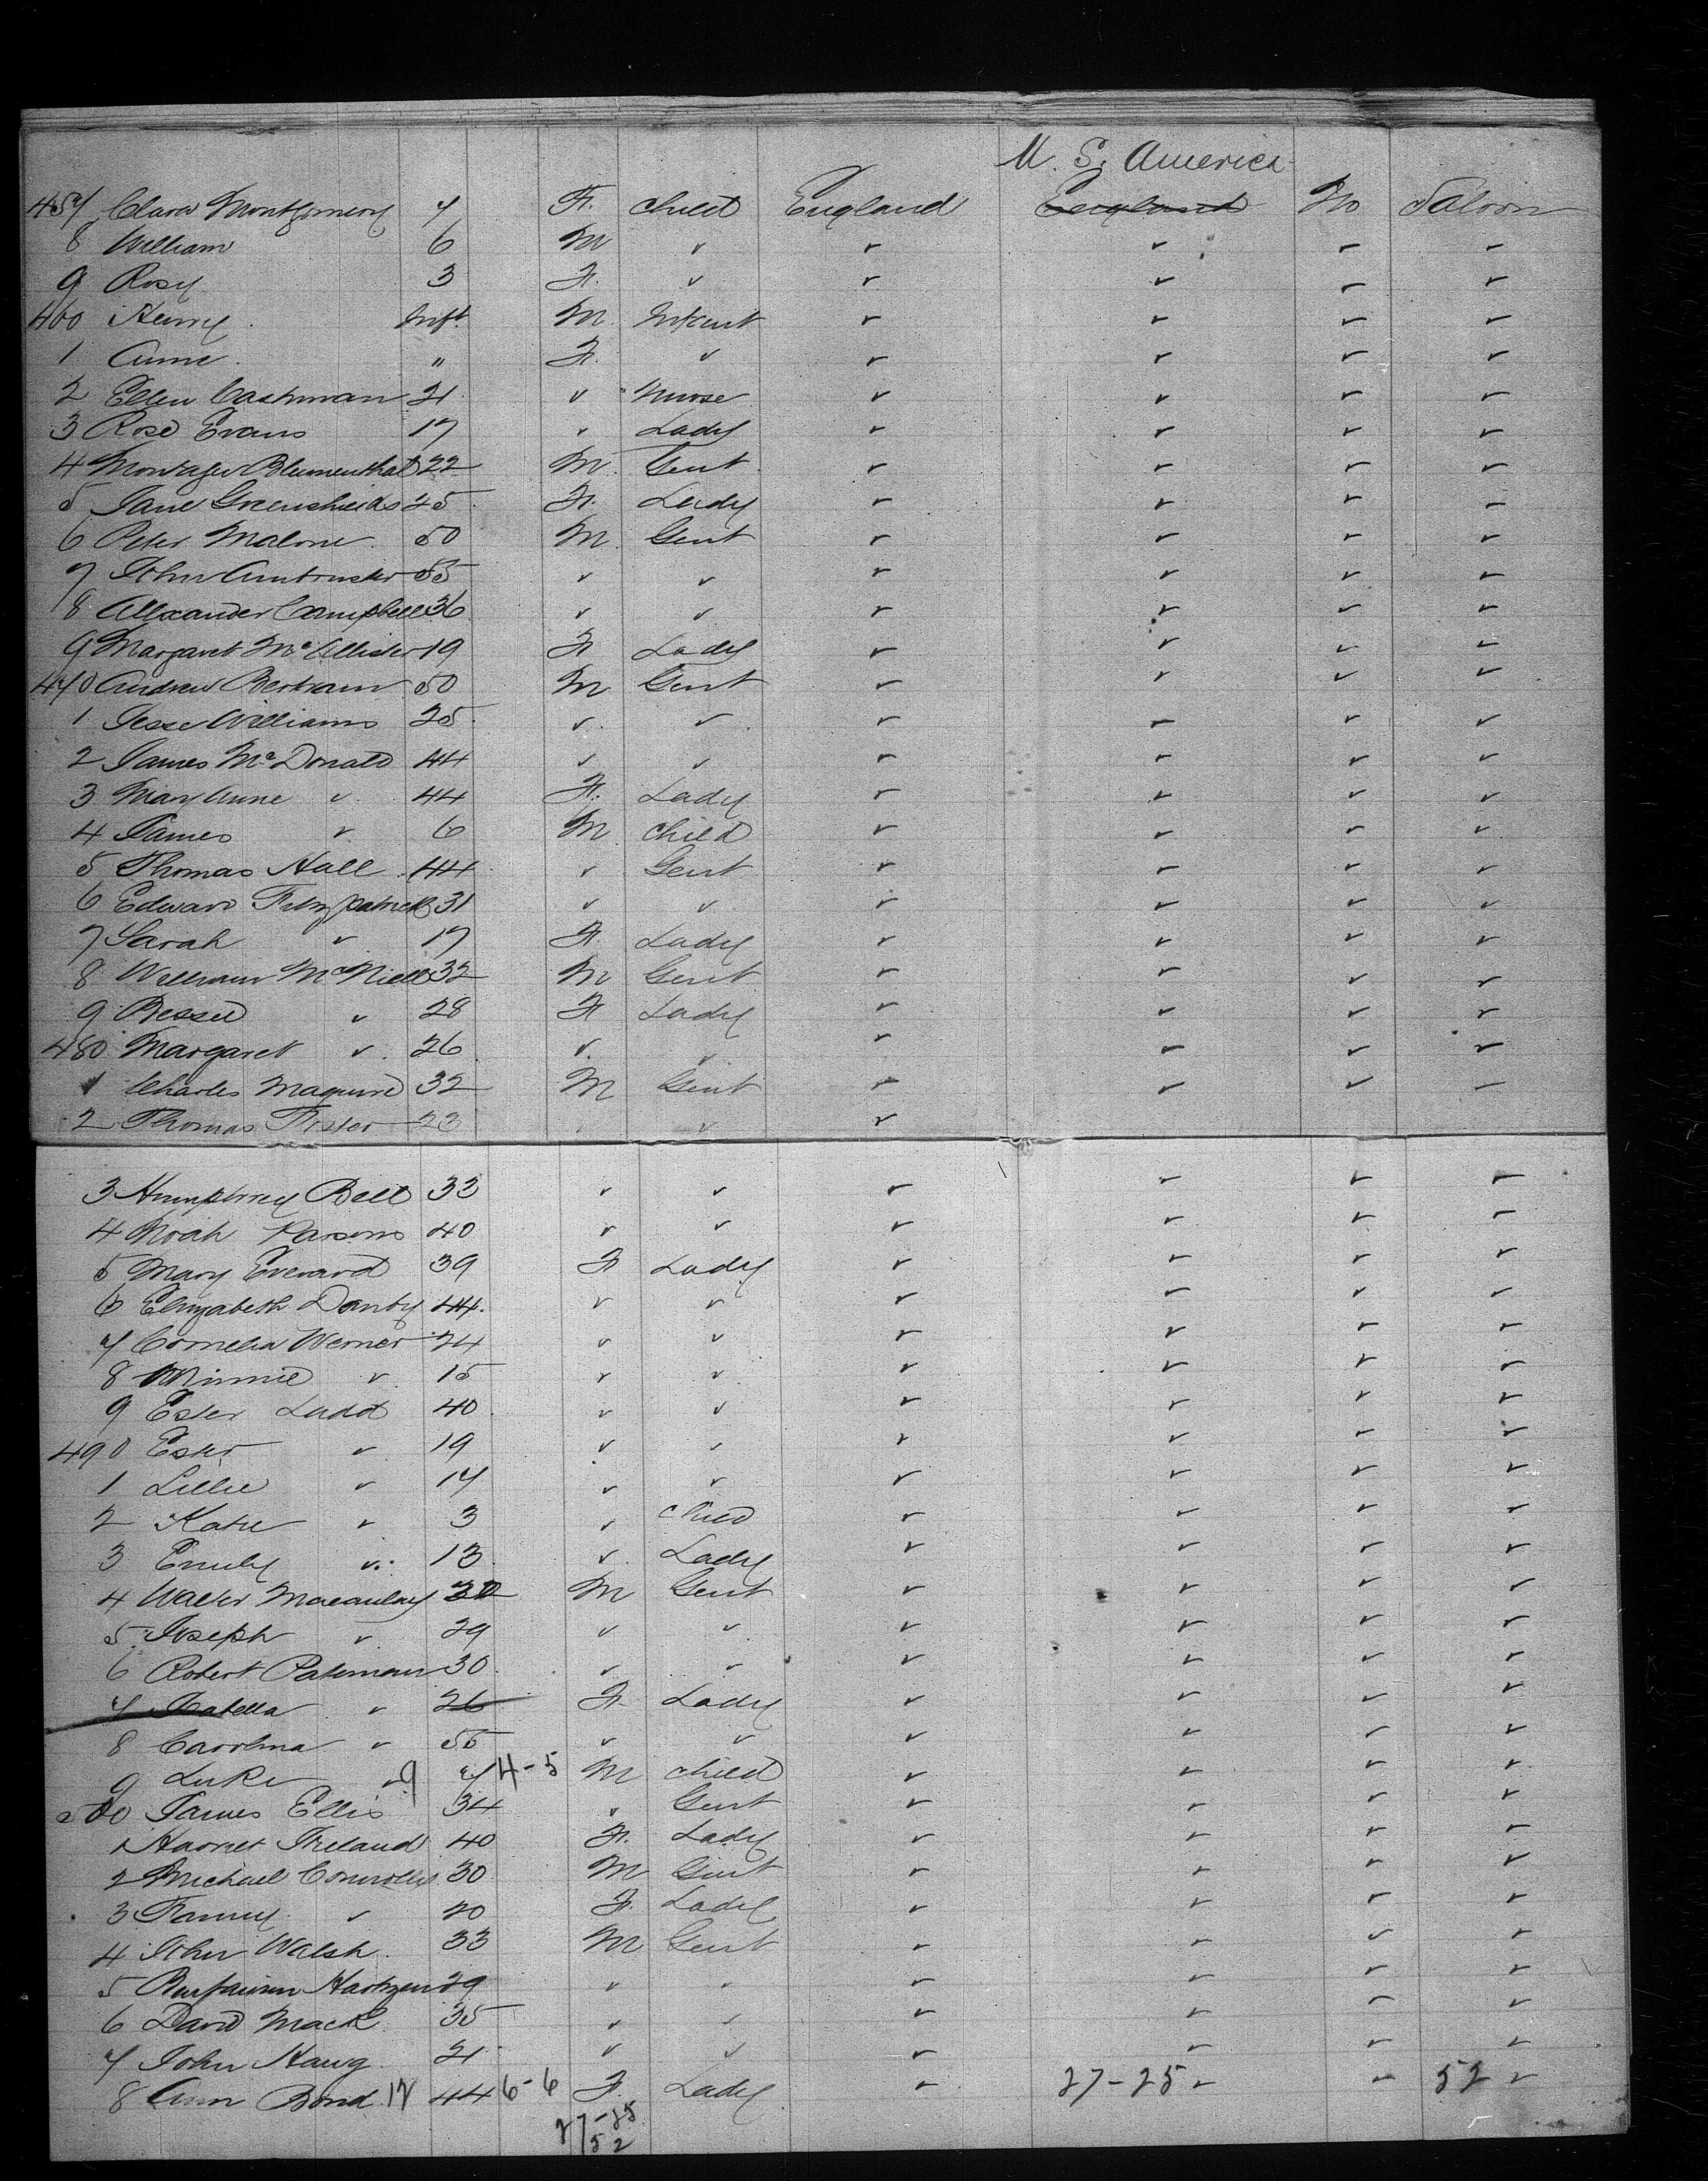 U. S. America
457 Clara Montgomery 7 F. Child England England No Saloon
8 William 6 M " " " " "
9 Rosy 3 F. " " " " "
460 Henry Inft. M. Infant " " " "
1 Anne " F. " " " " "
2 Ellen Cashman 21 " Nurse " " " "
3 Rose Evans 17 " Lady " " " "
4 Montague Blumenthal 22 M. Gent " " " "
5 Jane Greenshields 45 F. Lady " " " "
6 Peter Malone 50 M. Gent " " " "
7 John 55 " " " " " "
8 Alexander Campbell 36 " " " " " "
9 Margaret McAllister 19 F Lady " " " "
470 Andrew Bertram 50 M Gent " " " "
1 Jesse Williams 25 " " " " " "
2 James McDonald 44 " " " " " "
3 Mary Anne " 44 F. Lady " " " "
4 James " 6 M Child " " " "
5 Thomas Hall 44 " Gent " " " "
6 Edward Fitzpatrick 31 " " " " " "
7 Sarah " 17 F. Lady " " " "
8 William McNiell 32 M Gent " " " "
9 Bessie " 28 F Lady " " " "
480 Margaret " 26 " " " " " "
1 Charles Maguire 32 M Gent " " " "
2 Thomas Foster 23 " " "
3 Humphrey Bell 33 " " " " " "
4 Noah Parsons 40 " " " " " "
5 Mary Everard 39 F Lady " " " "
6 Elizabeth Danby 44 " " " " " "
7 Cornelia Werner 24 " " " " " "
8 Minnie " 15 " " " " " "
9 Ester Ladd 40 " " " " " "
490 Ester " 19 " " " " " "
1 Lillie " 17 " " " " " "
2 Katie " 3 " Child " " " "
3 Emily " 13 " Lady " " " "
4 Walter Macaulay 32 M Gent " " " "
5 Joseph " 29 " " " " " "
6 Robert Pateman 30 " " " " " "
7 Isabella " 26 F. Lady " " " "
8 Carolina " 55 " " " " " "
9 Luke " 9 7 4-5 M Child " " " "
500 James Ellis 34 " Gent " " " "
1 Harriet Ireland 40 F. Lady " " " "
2 Michael Connolly 30 M Gent " " " "
3 Fanny " 20 F. Lady " " " "
4 John Walsh 33 M Gent " " " "
5 Benjamin 29 " " " " " "
6 David Mack 35 " " " " " "
7 John Haug 21 " " " " " "
8 Ann Bond 12 44 6-6 F. Lady " 27-25 " " 52 "
27-25
52